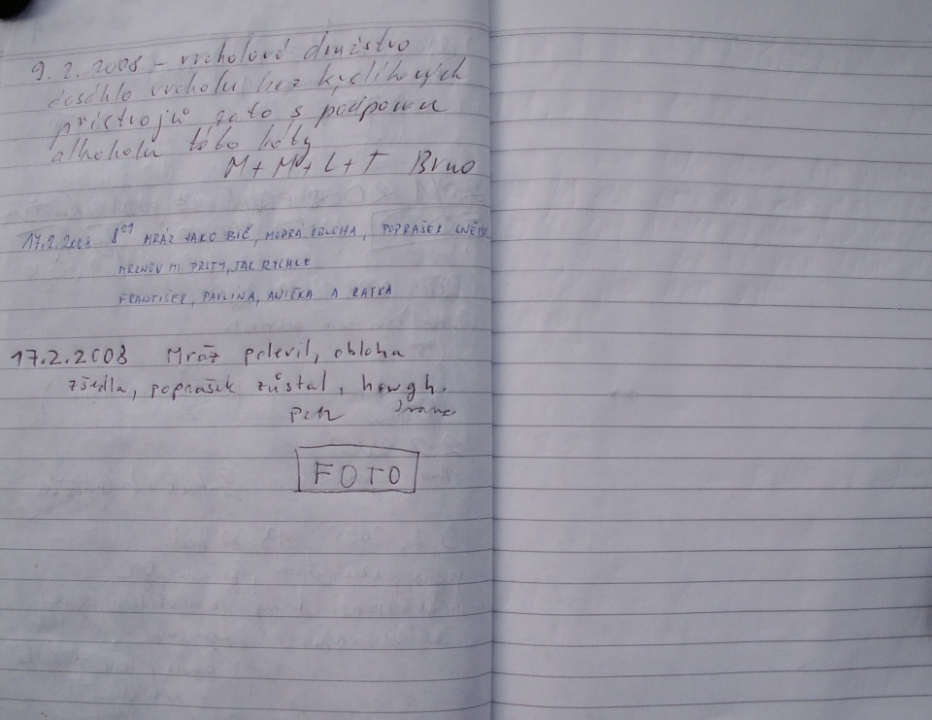 9. 2. 2008 – vrcholové družstvo
dosáhlo vrcholu bez kyslíkových
přístrojů zato s podporou
alkoholu
M + M + L + T Brno
17.2.2008 8⁰⁷ MRÁZ JAKO BIČ, MODRÁ OBLOHA, POPRAŠEK SNĚHU
MRZNOU MI PRSTY, TAK RYCHLE
FRANTIŠEK, PAVLÍNA, ANIČKA A
17.2.2008 Mráz polevil, obloha
zšedla, poprašek zůstal, howgh.
Petr
FOTO